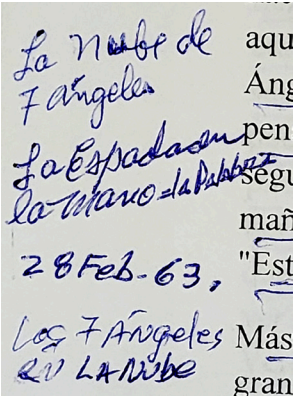 La Nube de
7 ángeles
La Espada en
la Mano = la Palabra
28 Feb - 63,
Los 7 Ángeles
EN LA NUBE
aqu
Áng
pen
segu
mañ
"Est
Más
gran